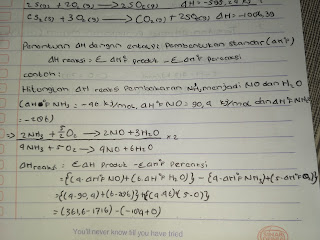 2S(s) + 2O₂(g) → 2SO₂(g) ΔH =
CS₂(s) + 3O₂(g) → CO₂(g) + 2SO₂(g) ΔH =
Penentuan ΔH dengan entalpi Pembentukan standar (ΔH°f)
ΔH reaksi = Σ ΔH°f produk - Σ ΔH°f pereaksi
contoh :
Hitunglah ΔH reaksi Pembakaran NH₃ menjadi NO dan H₂O
(ΔH°f NH₃ = -46 kJ/mol, ΔH°f NO = 90,4 kJ/mol dan ΔH°f H₂O
= -286)
⇒ 2NH₃ + 5/2 O₂ → 2NO + 3H₂O × 2
4NH₃ + 5O₂ → 4NO + 6H₂O
ΔH reaksi = Σ ΔH Produk - Σ ΔH°f Pereaksi
= {(4·ΔH°f NO) + (6·ΔH°f H₂O)} - {(4·ΔH°f NH₃) + (5·ΔH°f O₂)}
= {(4·90,4) + (6·-286)} - {(4·-46) + (5·0)}
= (361,6 - 1716) - (-184 + 0)
You'll never know till you have tried